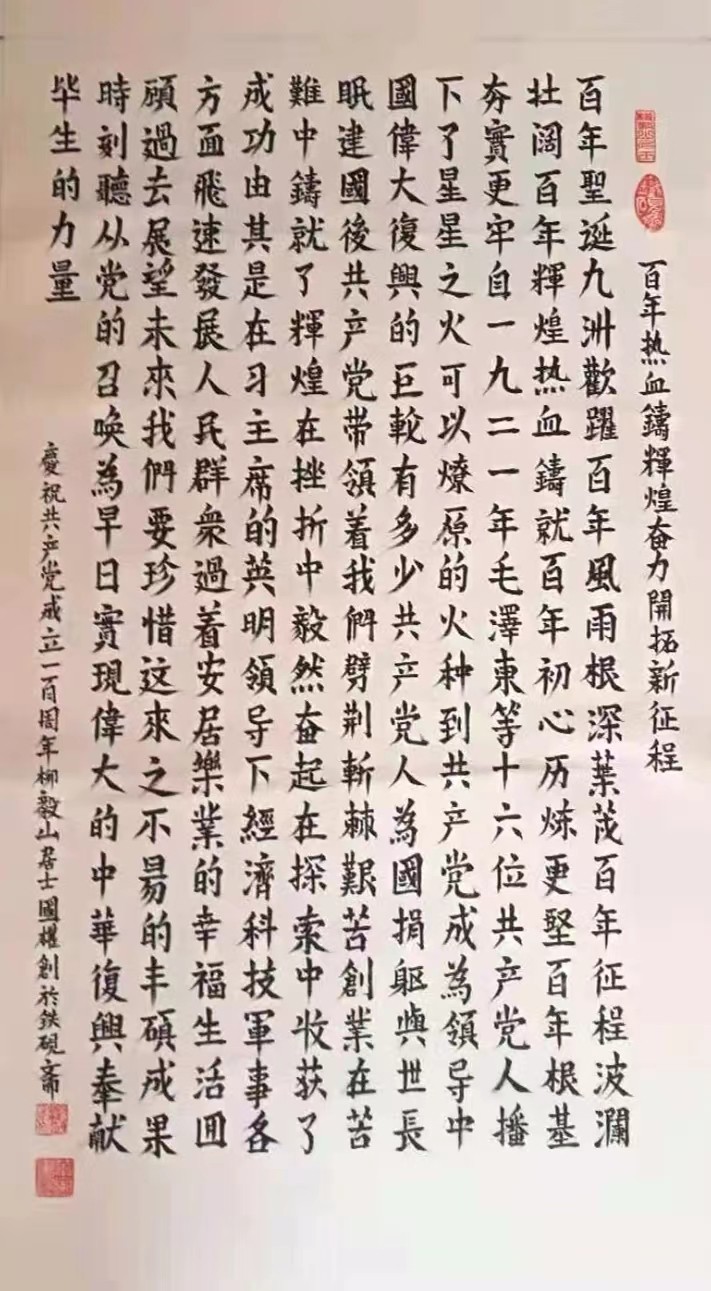 百年热血鑄輝煌奋力開拓新征程
百年聖誕九洲歡躍百年風雨根深葉茂百年征程波瀾
壮阔百年輝煌热血鑄就百年初心历炼更堅百年根基
夯實更牢自一九二一年毛澤東等十六位共产党人播
下了星星之火可以燎原的火种到共产党成為領导中
國偉大復興的巨輪有多少共产党人為國捐躯與世長
眠建國後共产党带領着我們劈荆斬棘艱苦創業在苦
難中鑄就了輝煌在挫折中毅然奋起在探索中收获了
成功由其是在习主席的英明領导下經濟科技軍事各
方面飛速發展人民群衆過着安居樂業的幸福生活回
顧過去展望未來我們要珍惜这來之不易的丰碩成果
時刻聽从党的召唤為早日實現偉大的中華復興奉献
毕生的力量
慶祝共产党成立一百周年柳毅山居士國權創於鉄硯斋